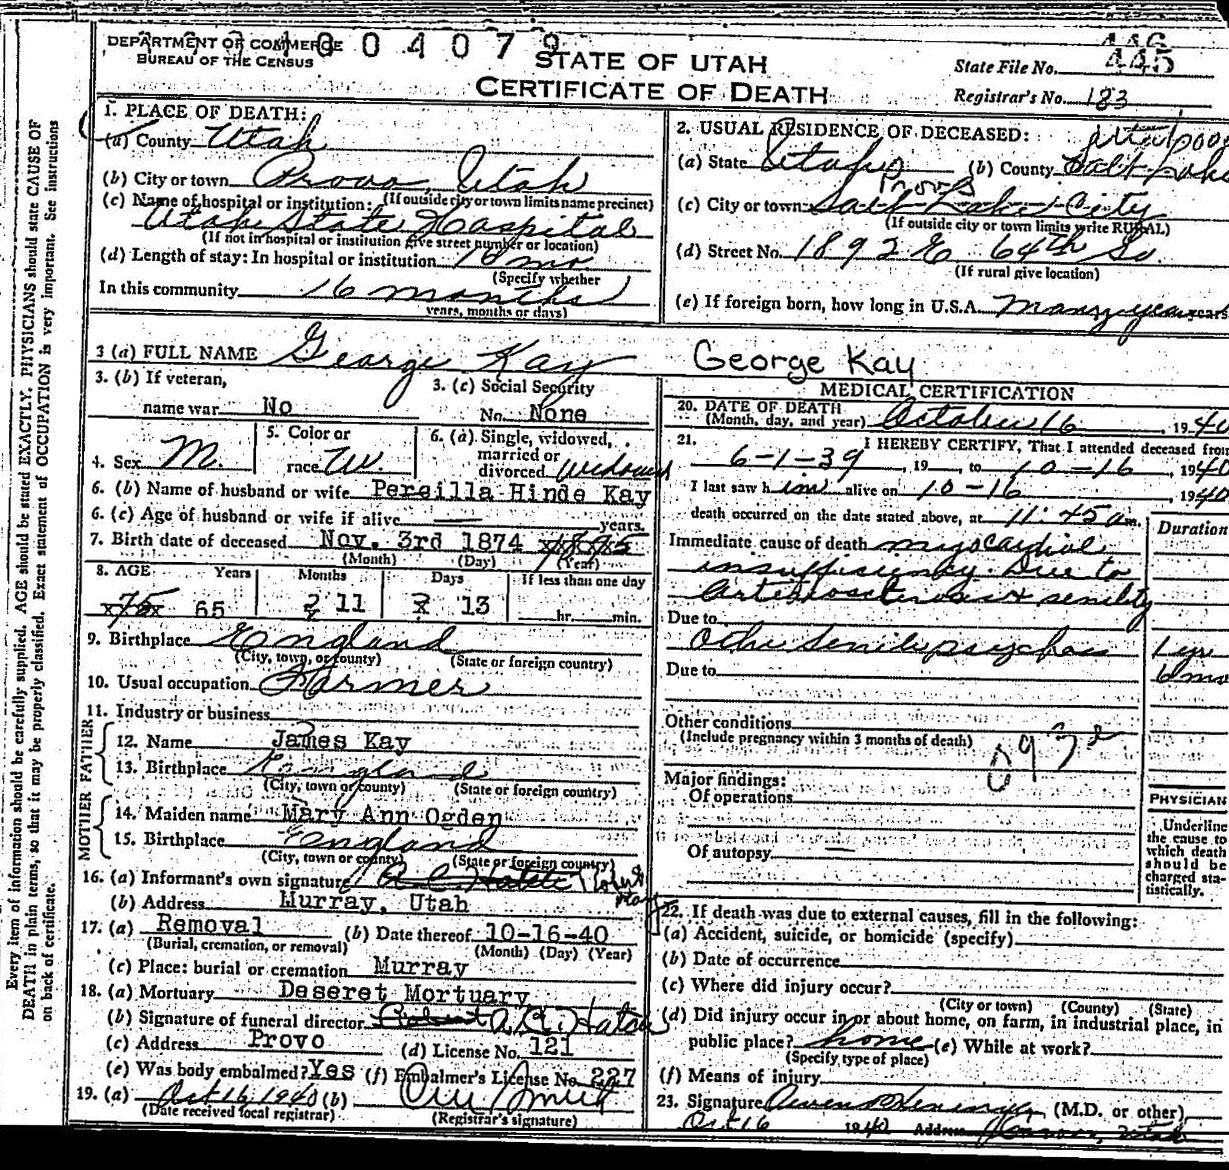 DEPARTMENT OF COMMERCE
BUREAU OF THE CENSUS
1004079
STATE OF UTAH
CERTIFICATE OF DEATH
State File No. 445
Registrar's No. 183
1. PLACE OF DEATH:
(a) County Utah
(b) City or town Provo, Utah
(If outside city or town limits name precinct)
(c) Name of hospital or institution:
Utah State Hospital
(If not in hospital or institution give street number or location)
(d) Length of stay: In hospital or institution 16 mo
(Specify whether
In this community 16 months
years, months or days)
2. USUAL RESIDENCE OF DECEASED:
(a) State Utah (b) County Salt Lake
Provo
(c) City or town Salt Lake City
(If outside city or town limits write RURAL)
(d) Street No. 1892 E 64th So
(If rural give location)
(e) If foreign born, how long in U.S.A. Many years years
3 (a) FULL NAME George Kay George Kay
3. (b) If veteran,
name war No
3. (c) Social Security
No. None
4. Sex M.
5. Color or
race W.
6. (a) Single, widowed,
married or
divorced Widowed
6. (b) Name of husband or wife Pereilla Hinde Kay
6. (c) Age of husband or wife if alive years.
7. Birth date of deceased Nov. 3rd 1874 1865
(Month) (Day) (Year)
8. AGE Years Months Days If less than one day
75 65 2 11 2 13 hr. min.
9. Birthplace England
(City, town, or county) (State or foreign country)
10. Usual occupation Farmer
11. Industry or business
FATHER
12. Name James Kay
13. Birthplace England
(City, town or county) (State or foreign country)
MOTHER
14. Maiden name Mary Ann Ogden
15. Birthplace England
(City, town or county) (State or foreign country)
16. (a) Informant's own signature
(b) Address Murray, Utah
17. (a) Removal (b) Date thereof 10-16-40
(Burial, cremation, or removal) (Month) (Day) (Year)
(c) Place: burial or cremation Murray
18. (a) Mortuary Deseret Mortuary
(b) Signature of funeral director Robert A. C. Hatch
(c) Address Provo (d) License No. 121
(e) Was body embalmed? Yes (f) Embalmer's License No. 227
19. (a) Oct 16, 1940 (b)
(Date received local registrar) (Registrar's signature)
MEDICAL CERTIFICATION
20. DATE OF DEATH
(Month, day, and year) October 16, 1940
21. I HEREBY CERTIFY, That I attended deceased from
6-1-39, 19 , to 10-16, 1940
I last saw him alive on 10-16, 1940
death occurred on the date stated above, at 11:45 am.
Duration
Immediate cause of death myocardial
insufficiency. Due to
Arteriosclerosis & senility
Due to
Other Senile psychosis 1 yr
Due to 6 mo
Other conditions
(Include pregnancy within 3 months of death)
Major findings:
Of operations
Of autopsy
PHYSICIAN
Underline
the cause to
which death
should be
charged sta-
tistically.
22. If death was due to external causes, fill in the following:
(a) Accident, suicide, or homicide (specify)
(b) Date of occurrence
(c) Where did injury occur?
(City or town) (County) (State)
(d) Did injury occur in or about home, on farm, in industrial place, in
public place? home (e) While at work?
(Specify type of place)
(f) Means of injury
23. Signature (M.D. or other)
Oct 16 1940 Address Provo, Utah
Every item of information should be carefully supplied. AGE should be stated EXACTLY. PHYSICIANS should state CAUSE OF
DEATH in plain terms, so that it may be properly classified. Exact statement of OCCUPATION is very important. See instructions
on back of certificate.